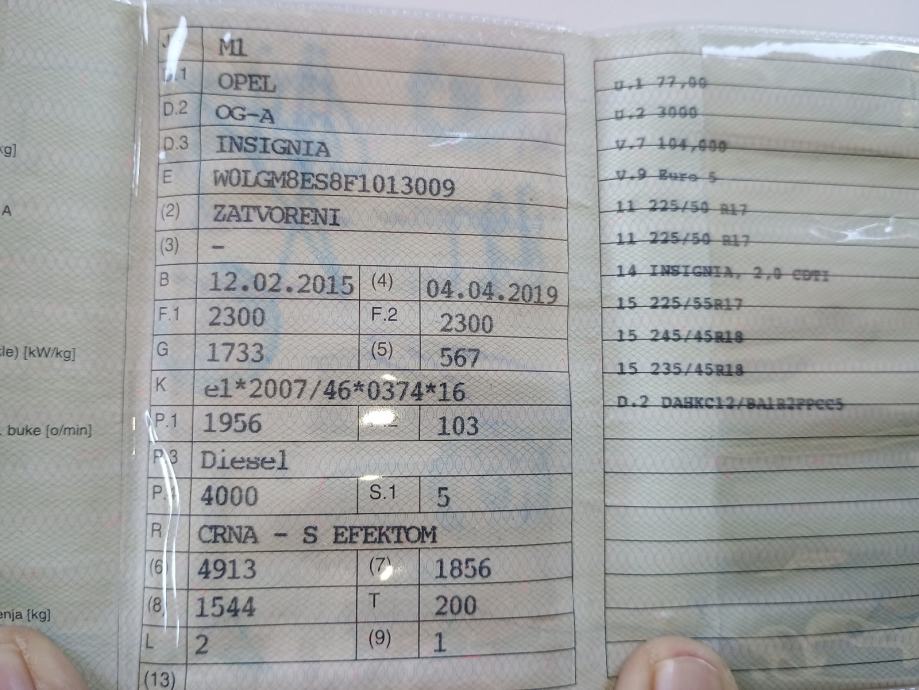 kg]
A
le) [kW/kg]
. buke [o/min]
enja [kg]
J M1
D.1 OPEL
D.2 OG-A
D.3 INSIGNIA
E W0LGM8ES8F1013009
(2) ZATVORENI
(3) –
B 12.02.2015 (4) 04.04.2019
F.1 2300 F.2 2300
G 1733 (5) 567
K e1*2007/46*0374*16
P.1 1956 103
P.3 Diesel
P. 4000 S.1 5
R CRNA - S EFEKTOM
(6 4913 (7) 1856
(8 1544 T 200
L 2 (9) 1
(13)
U.1 77,00
U.2 3000
V.7 104,000
V.9 Euro 5
11 225/50 R17
11 225/50 R17
14 INSIGNIA, 2,0 CDTI
15 225/55R17
15 245/45R18
15 235/45R18
D.2